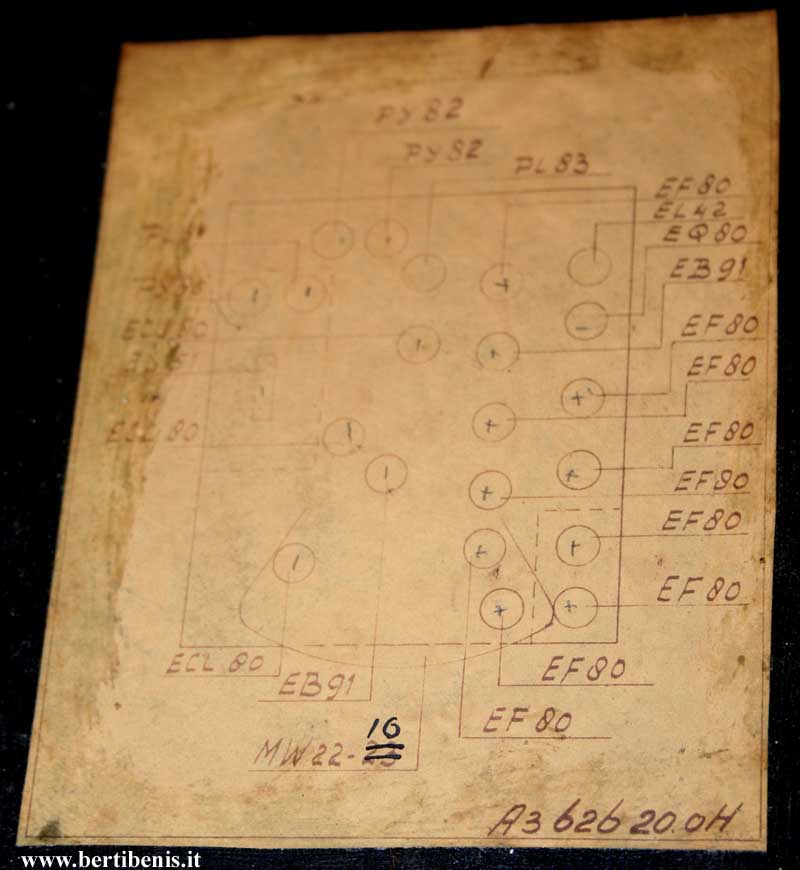 PY82
PY82
PL83
EF80
EL42
EQ80
EB91
EF80
EF80
EF80
EF80
EF80
EF80
ECL80
ECL80
ECL80
EB91
EF80
EF80
16
MW22-23
A3 626 20.0H
www.bertibenis.it